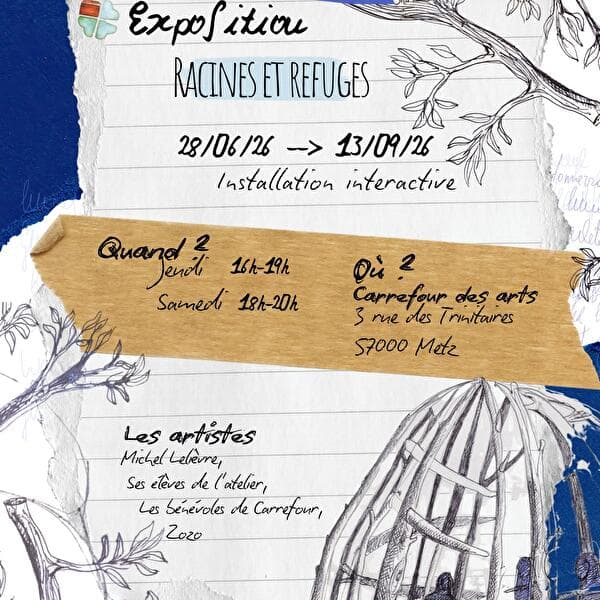 Exposition
RACINES ET REFUGES
28/06/26 --> 13/09/26
Installation interactive
Quand ?
Jeudi 16h-19h
Samedi 18h-20h
Où ?
Carrefour des arts
3 rue des Trinitaires
57000 Metz
Les artistes
Michel Lelièvre,
Ses élèves de l'atelier,
Les bénévoles de Carrefour,
Zozo